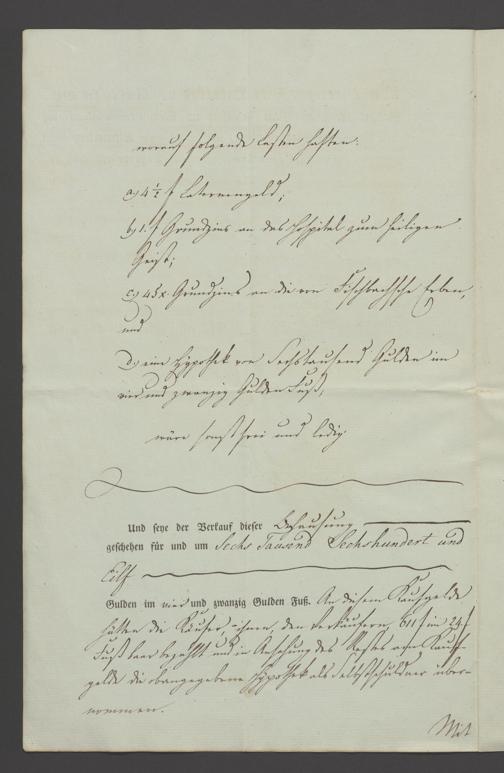 worauf folgende Lasten haften:
a) 4 1/2 f Laternengeld;
b) 1. f Grundzins an das Hospital zum heiligen
Geist;
c) 45 x. Grundzins an die von Fischbachsche Erben,
und
d) eine Hypothek von Sechstausend Gulden im
vier und zwanzig Gulden Fuß,
wäre sonst frei und ledig.
Und seye der Verkauf dieser Behausung
geschehen für und um Sechs Tausend Sechshundert und
Eilf
Gulden im vier und zwanzig Gulden Fuß. An diesem Kaufgelde
hätten die Käufer, ihnen, den Verkäufern, 611 f im 24 f
Fuß baar bezahlt und in Ansehung des Restes am Kauf-
gelde die obenangegebene Hypothek als Selbstschuldner über-
nommen.
Mit